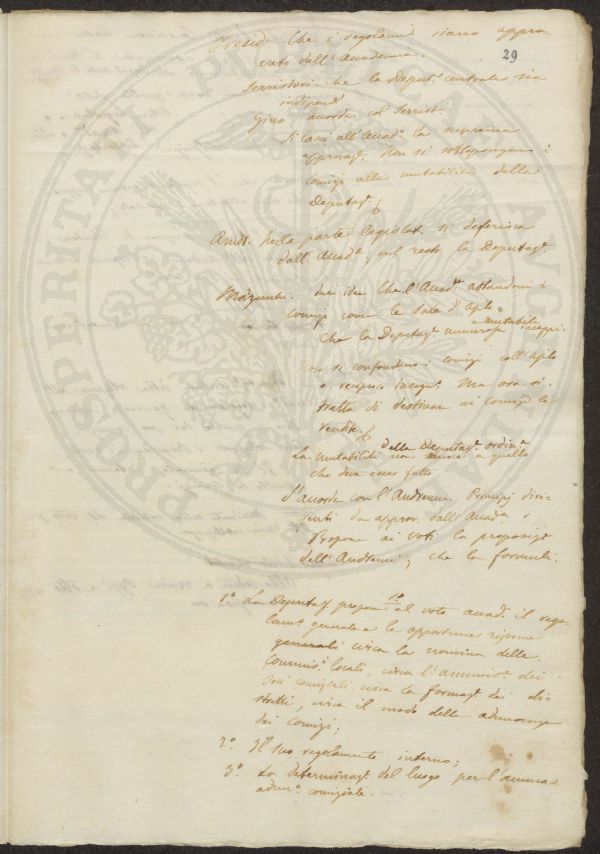 Presid. Che i regolam. siano appro-
vati dall'Accademia.
29
Serristori che la Deput. centrale sia
indipend.
Gino accorda col Serrist.
si lasci all'Accad. la suprema
approvaz. Non si sottopongano i
comizj alla mutabilità della
Deputaz.
Andr. Nella parte legislat. si deferisca
dall'Accad., nel resto la Deputaz.
che l'Accad. abbandoni i
comizj come le Sale d'Asilo
che la Deputaz. numerosa mutabile
si confondono i comizj coll'Asilo
o reciproco insegn. Ma ora si
tratta di destinare ai comizj le
rendite
La mutabilità della Deputaz. ordin. non nuoce a quello
che deve esser fatto
S'accorda con l'Andreucci. Principj diri-
genti da approv. dall'Accad.
Propone ai voti la proposiz.
dell'Andreucci, che la formula:
1º La Deputaz. propone al voto accad. il rego-
lam. generale e le opportune riforme
generali circa la nomina delle
Commis. locali, circa l'ammis. dei
soci comiziali, circa la formaz. dei di-
stretti, circa il modo delle adunanze
dei comizj;
2º. Il suo regolamento interno;
3º. La determinaz. del luogo per l'annua
adun. comiziale.
PROSPERITATI PUBLICAE AUGENDAE